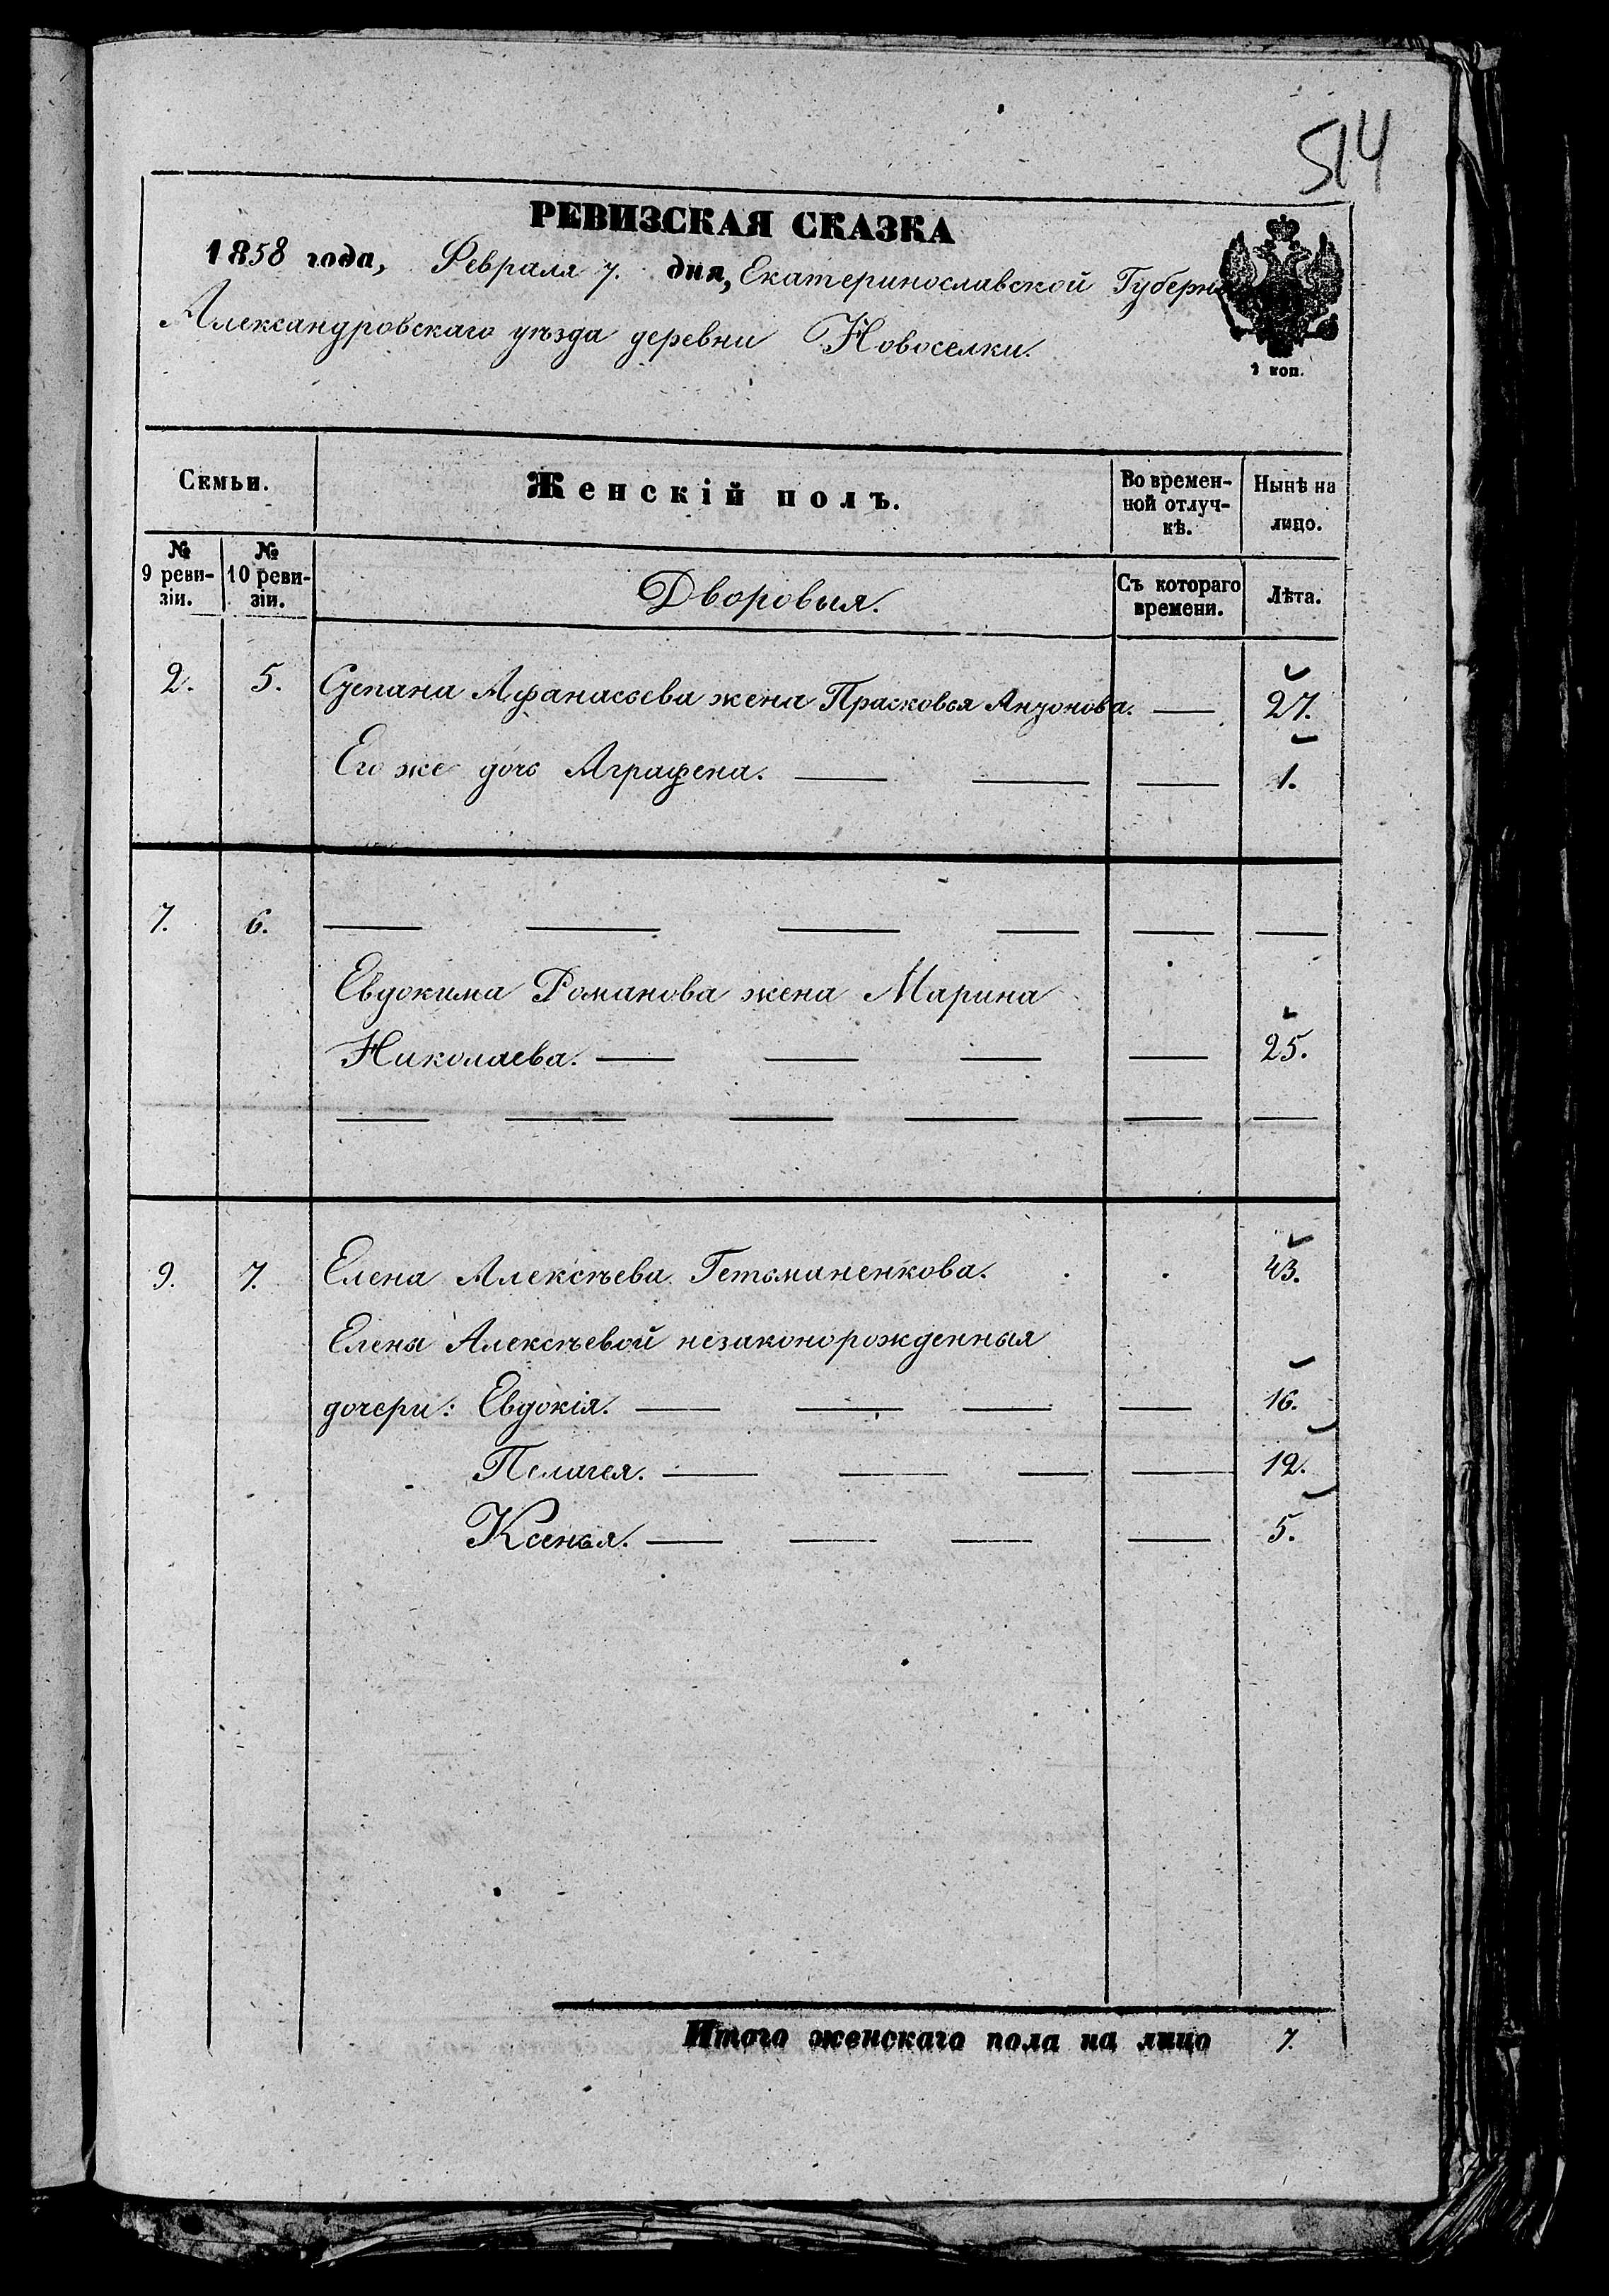 514
РЕВИЗСКАЯ СКАЗКА
1858 года, Февраля 7. дня, Екатеринославской Губерніи
Александровскаго уѣзда деревни Новоселки.
2 коп.
Семьи. Женскій полъ. Во времен-ной отлуч-кѣ. Нынѣ на лицо.
№ 9 реви-зіи. № 10 реви-зіи. Дворовыя. Съ котораго времени. Лѣта.
2. 5. Степана Афанасьева жена Прасковья Антонова. — 27.
Его же дочь Аграфена. — — — 1.
7. 6. — — — — — —
Евдокима Романова жена Марина
Николаева. — — — — 25.
— — — — — —
9. 7. Елена Алексѣева Гетьманенкова. 43.
Елены Алексѣевой незаконорожденныя
дочери: Евдокія. — — — — 16.
Пелагея. — — — — 12.
Ксенья. — — — — 5.
Итого женскаго пола на лицо 7.